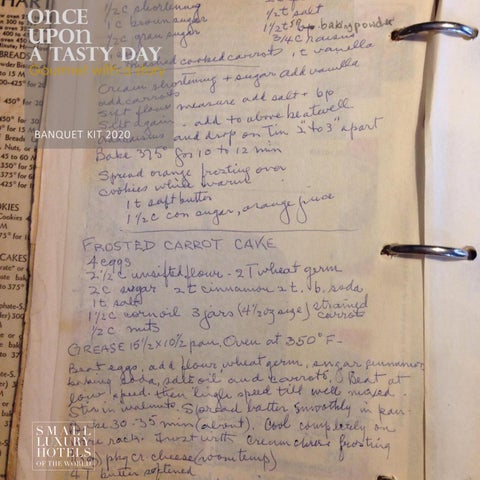 ONCE
UPON
A TASTY DAY
Gourmet with a story
BANQUET KIT 2020
1/2 c shortening
1 c brown sugar
1/2 c gran sugar
mashed cooked carrots, 1t vanilla
1/2 t salt
1 1/2 t bp baking powder
3/4 c raisins
Cream shortening + sugar add vanilla
add carrots
Sift flour measure add salt + bp
Sift again - add to above beat well
and drop on tin 2" to 3" apart
Bake 375° for 10 to 12 min
Spread orange frosting over
cookies while warm
1 t soft butter
1 1/2 c con sugar, orange juice
FROSTED CARROT CAKE
4 eggs
2 1/2 c unsifted flour - 2 T wheat germ
2 c sugar 2t cinnamon 2t. b. soda
1t salt
1 1/2 c corn oil 3 jars (4 1/2 oz size) strained carrots
1/2 c nuts
GREASE 15 1/2 x 10 1/2 pan, Oven at 350°F-
Beat eggs, add flour, wheat germ, sugar cinnamon
baking soda, salt oil and carrots. Beat at
low speed. then high speed till well mixed.
Stir in walnuts. Spread batter smoothly in pan-
30-35 min (about). Cool completely on
rack. Frost with Cream cheese frosting
pkg cr. cheese (room temp)
4 T butter softened
SMALL
LUXURY
HOTELS
OF THE WORLD